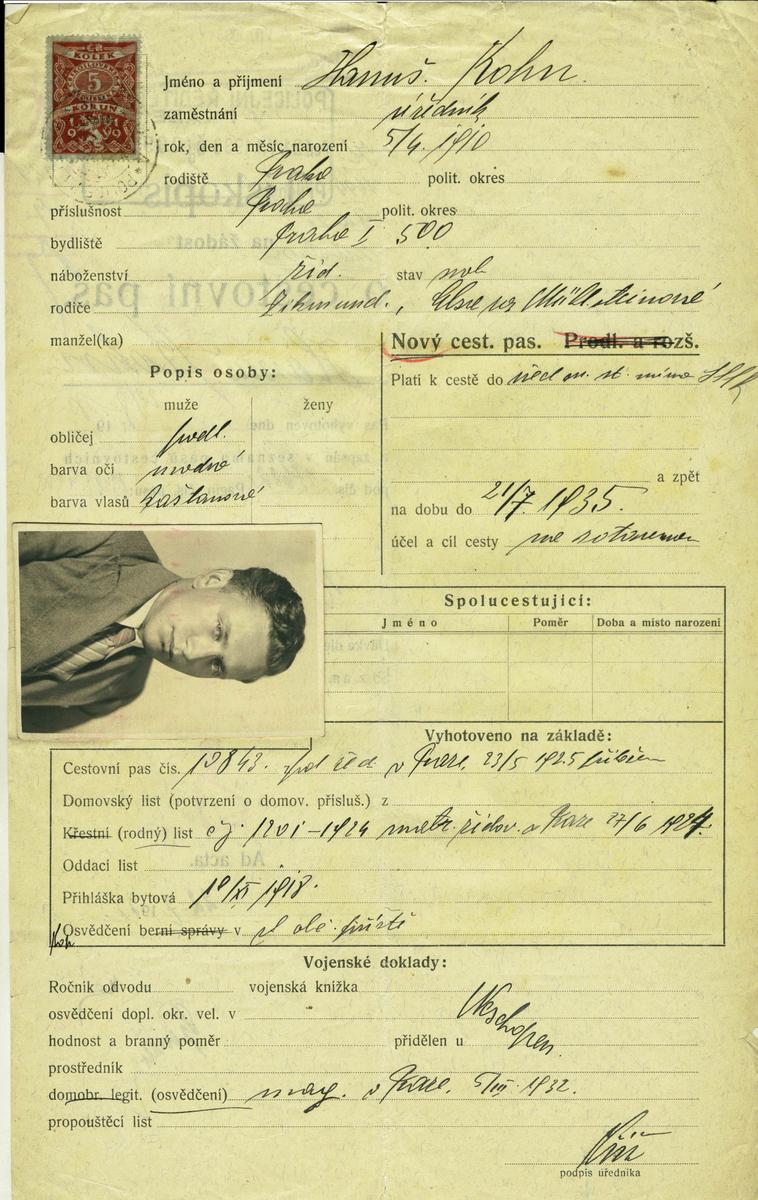 KOLEK
5
KORUN
1919
Jméno a příjmení Hanuš Kohn.
zaměstnání úředník
rok, den a měsíc narození 5/4. 1910
rodiště Praha polit. okres
příslušnost Praha polit. okres
bydliště Praha I 500
náboženství žid. stav svob
rodiče Zikmund., Elsa roz Müllsteinové
manžel(ka)
Nový cest. pas. Prodl. a rozš.
Popis osoby:
Platí k cestě do
muže ženy
obličej podl.
barva očí modré
barva vlasů kaštanové
a zpět
na dobu do 21/7. 1935.
účel a cíl cesty na zotavenou
Spolucestující:
Jméno Poměr Doba a místo narození
Vyhotoveno na základě:
Cestovní pas čís. v Praze. 23/5 1925
Domovský list (potvrzení o domov. přísluš.) z
Křestní (rodný) list čj. 1201-1924 matr. židov. v Praze 27/6 1924.
Oddací list
Přihláška bytová 10/XI 1918.
Osvědčení berní správy v
Vojenské doklady:
Ročník odvodu vojenská knížka
osvědčení dopl. okr. vel. v
Neschopen.
hodnost a branný poměr přidělen u
prostředník
domobr. legit. (osvědčení) mag. v Praze. 5/III. 1932.
propouštěcí list
podpis úředníka